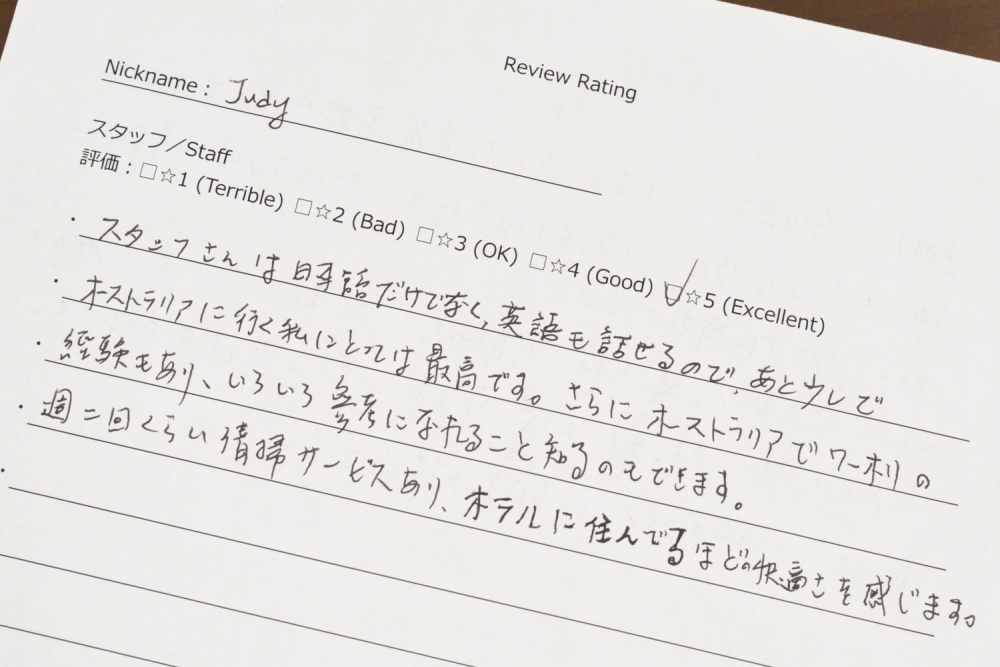 Review Rating
Nickname : Judy
スタッフ／Staff
評価：□☆1 (Terrible) □☆2 (Bad) □☆3 (OK) □☆4 (Good) ☑☆5 (Excellent)
・スタッフさんは日本語だけでなく、英語も話せるので、あと少しで
・オーストラリアに行く私にとっては最高です。さらにオーストラリアでワーホリの
・経験もあり、いろいろ参考になれること知るのもできます。
・週二回くらい清掃サービスあり、ホテルに住んでるほどの快適さを感じます。